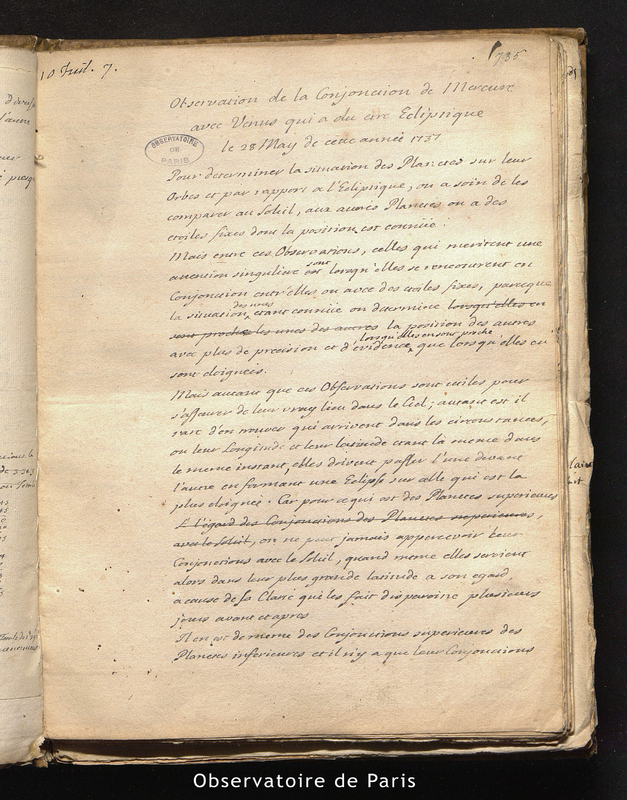 10 Juil. 7.
735
Observation de la Conjonction de Mercure
avec Venus qui a du etre Ecliptique
le 28 May de cette année 1737
OBSERVATOIRE
DE
PARIS
Pour determiner la situation des Planetes sur leur
Orbes et par rapport a l'Ecliptique, on a soin de les
comparer au Soleil, aux autres Planetes ou a des
etoiles fixes dont la position est connuë.
Mais entre ces Observations, celles qui meritent une
attention singuliere sont lorsqu'elles se rencontrent en
Conjonction entr'elles ou avec des etoiles fixes, parceque
la situation des unes etant connuë on determine lorsqu'elles en
sont proches les unes des autres la position des autres
avec plus de precision et d'evidence lorsqu'elles en sont proche que lorsqu'elles en
sont eloignées.
Mais autant que ces Observations sont utiles pour
s'assurer de leur vray lieu dans le Ciel; autant est il
rare d'en trouver qui arrivent dans les circonstances,
ou leur Longitude et leur latitude etant la meme dans
le meme instant, elles doivent passer l'une devant
l'autre en formant une Eclipse sur celle qui est la
plus eloignée. Car pour ce qui est des Planetes superieures
A l'égard des Conjonctions des Planetes superieures,
avec le Soleil, on ne peut jamais appercevoir leur
Conjonctions avec le Soleil, quand meme elles seroient
alors dans leur plus grande latitude a son egard,
a cause de sa Clarté qui les fait disparoitre plusieurs
jours avant et apres
Il en est de meme des Conjonctions superieures des
Planetes inferieures et il n'y a que leur Conjonctions
Observatoire de Paris